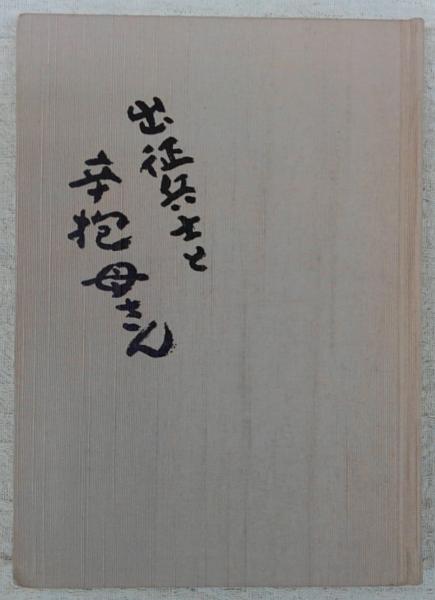 出征兵士と
辛抱母さん